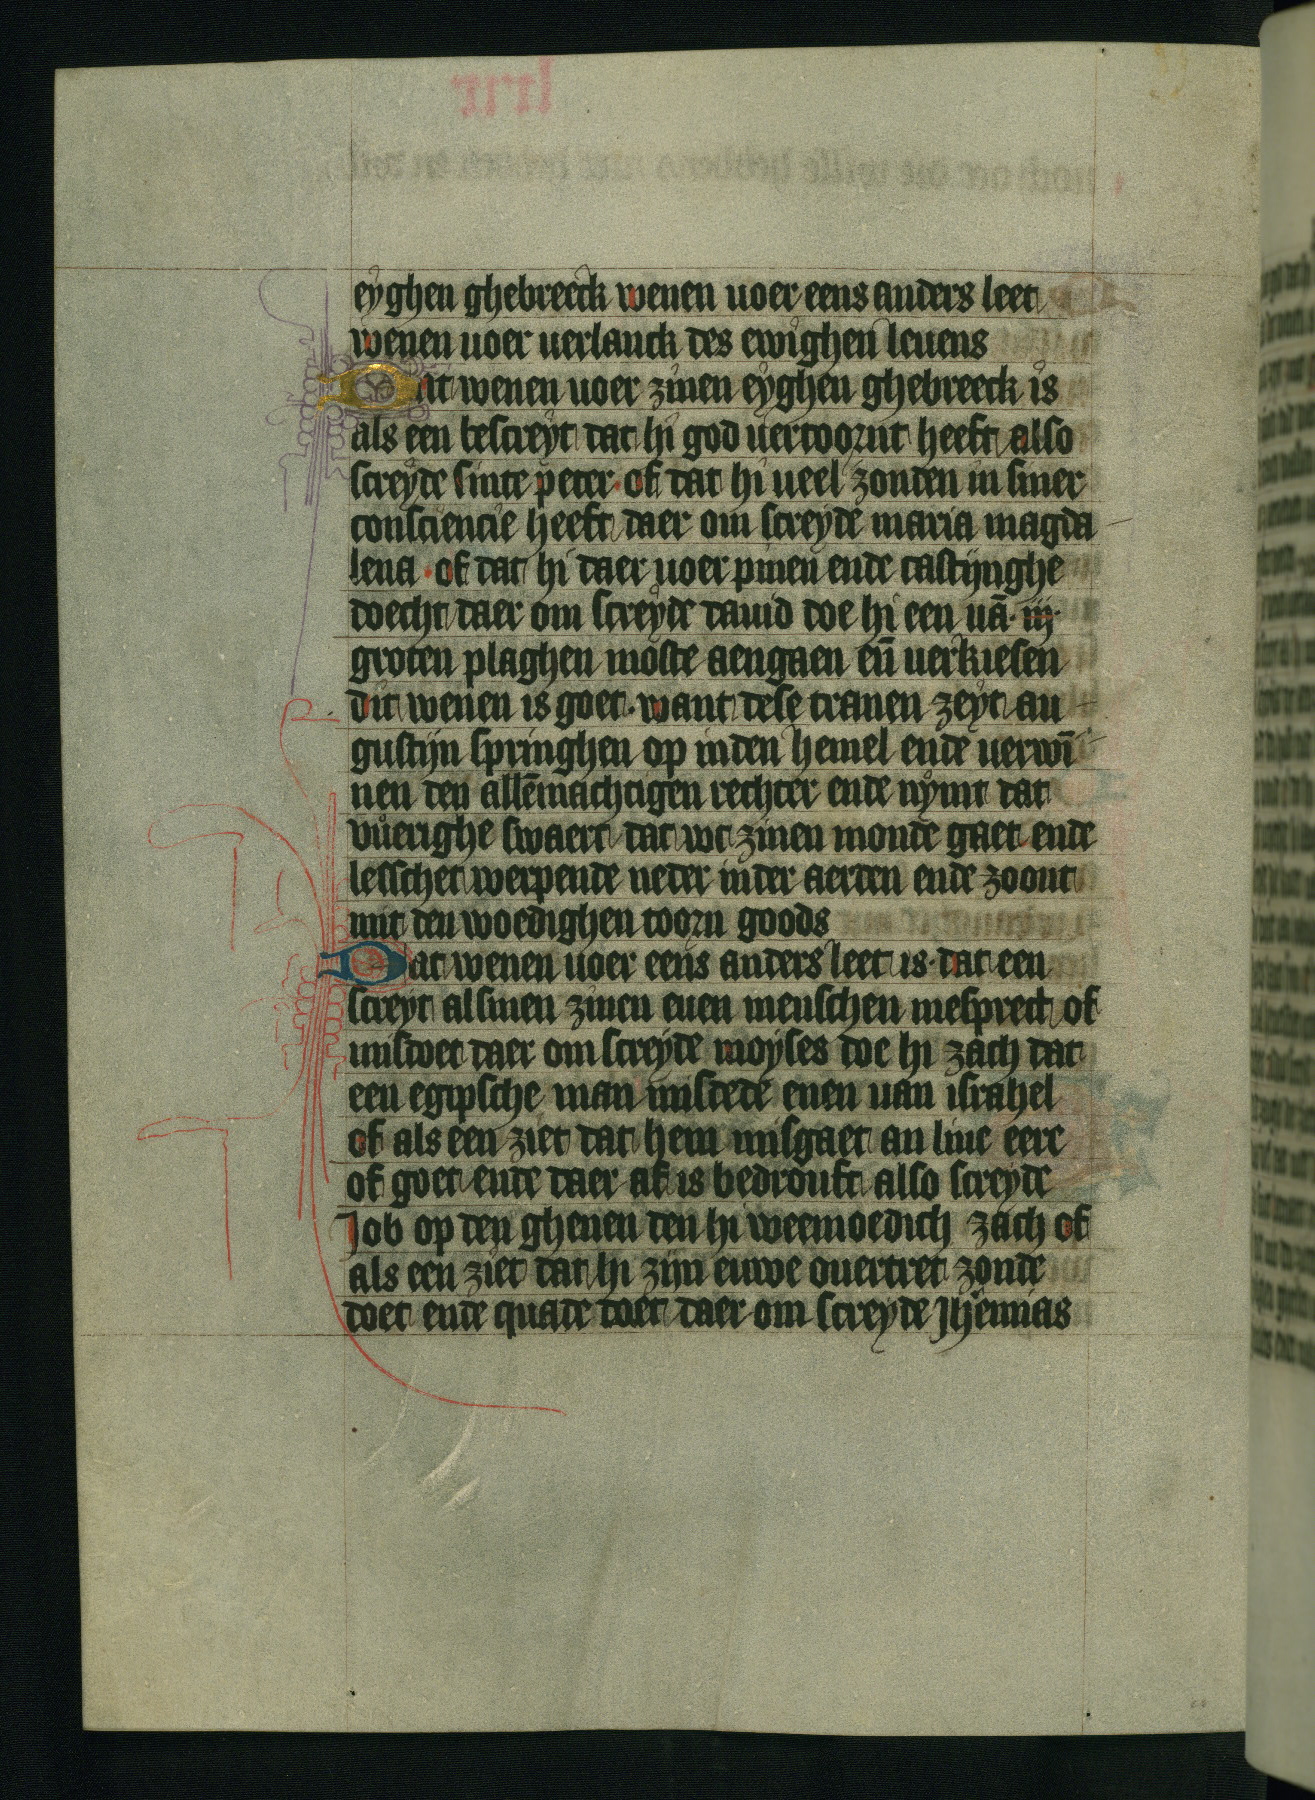 eyghen ghebreeck wenen uoer eens anders leet
wenen uoer uerlanck des ewighen leuens
Dit wenen uoer zinen eyghen ghebreeck is
als een bescreyt dat hi god uertoornt heeft also
screyde sinte peter · of dat hi ueel zonden in siner
consciencie heeft daer om screyde maria magda
lena · of dat hi daer uoer pinen ende castijnghe
doecht daer om screyde dauid doe hi een uā · iij ·
groten plaghen moste aengaen eñ uerkiesen
dit wenen is goet · want dese tranen zeyt au
gustijn springhen op inden hemel ende uerwī
nen den allēmachtigen rechter ende nymt dat
vuerighe swaert dat wt zinen monde gaet ende
lesschet werpende neder inder aerden ende zoont
mit den woedighen toorn goods
Dat wenen uoer eens anders leet is · dat een
screyt alsmen zinen euen menschen mesprect of
misdoet daer om screyde moyses doe hi zach dat
een egipsche man misdede enen uan israhel
of als een ziet dat hem misgaet an liue eere
of goet ende daer af is bedrouft also screyde
Job op den ghenen den hi weemoedich zach of
als een ziet dat hi zijn euwe ouertret zonde
doet ende quade doet daer om screyde Jhēmias